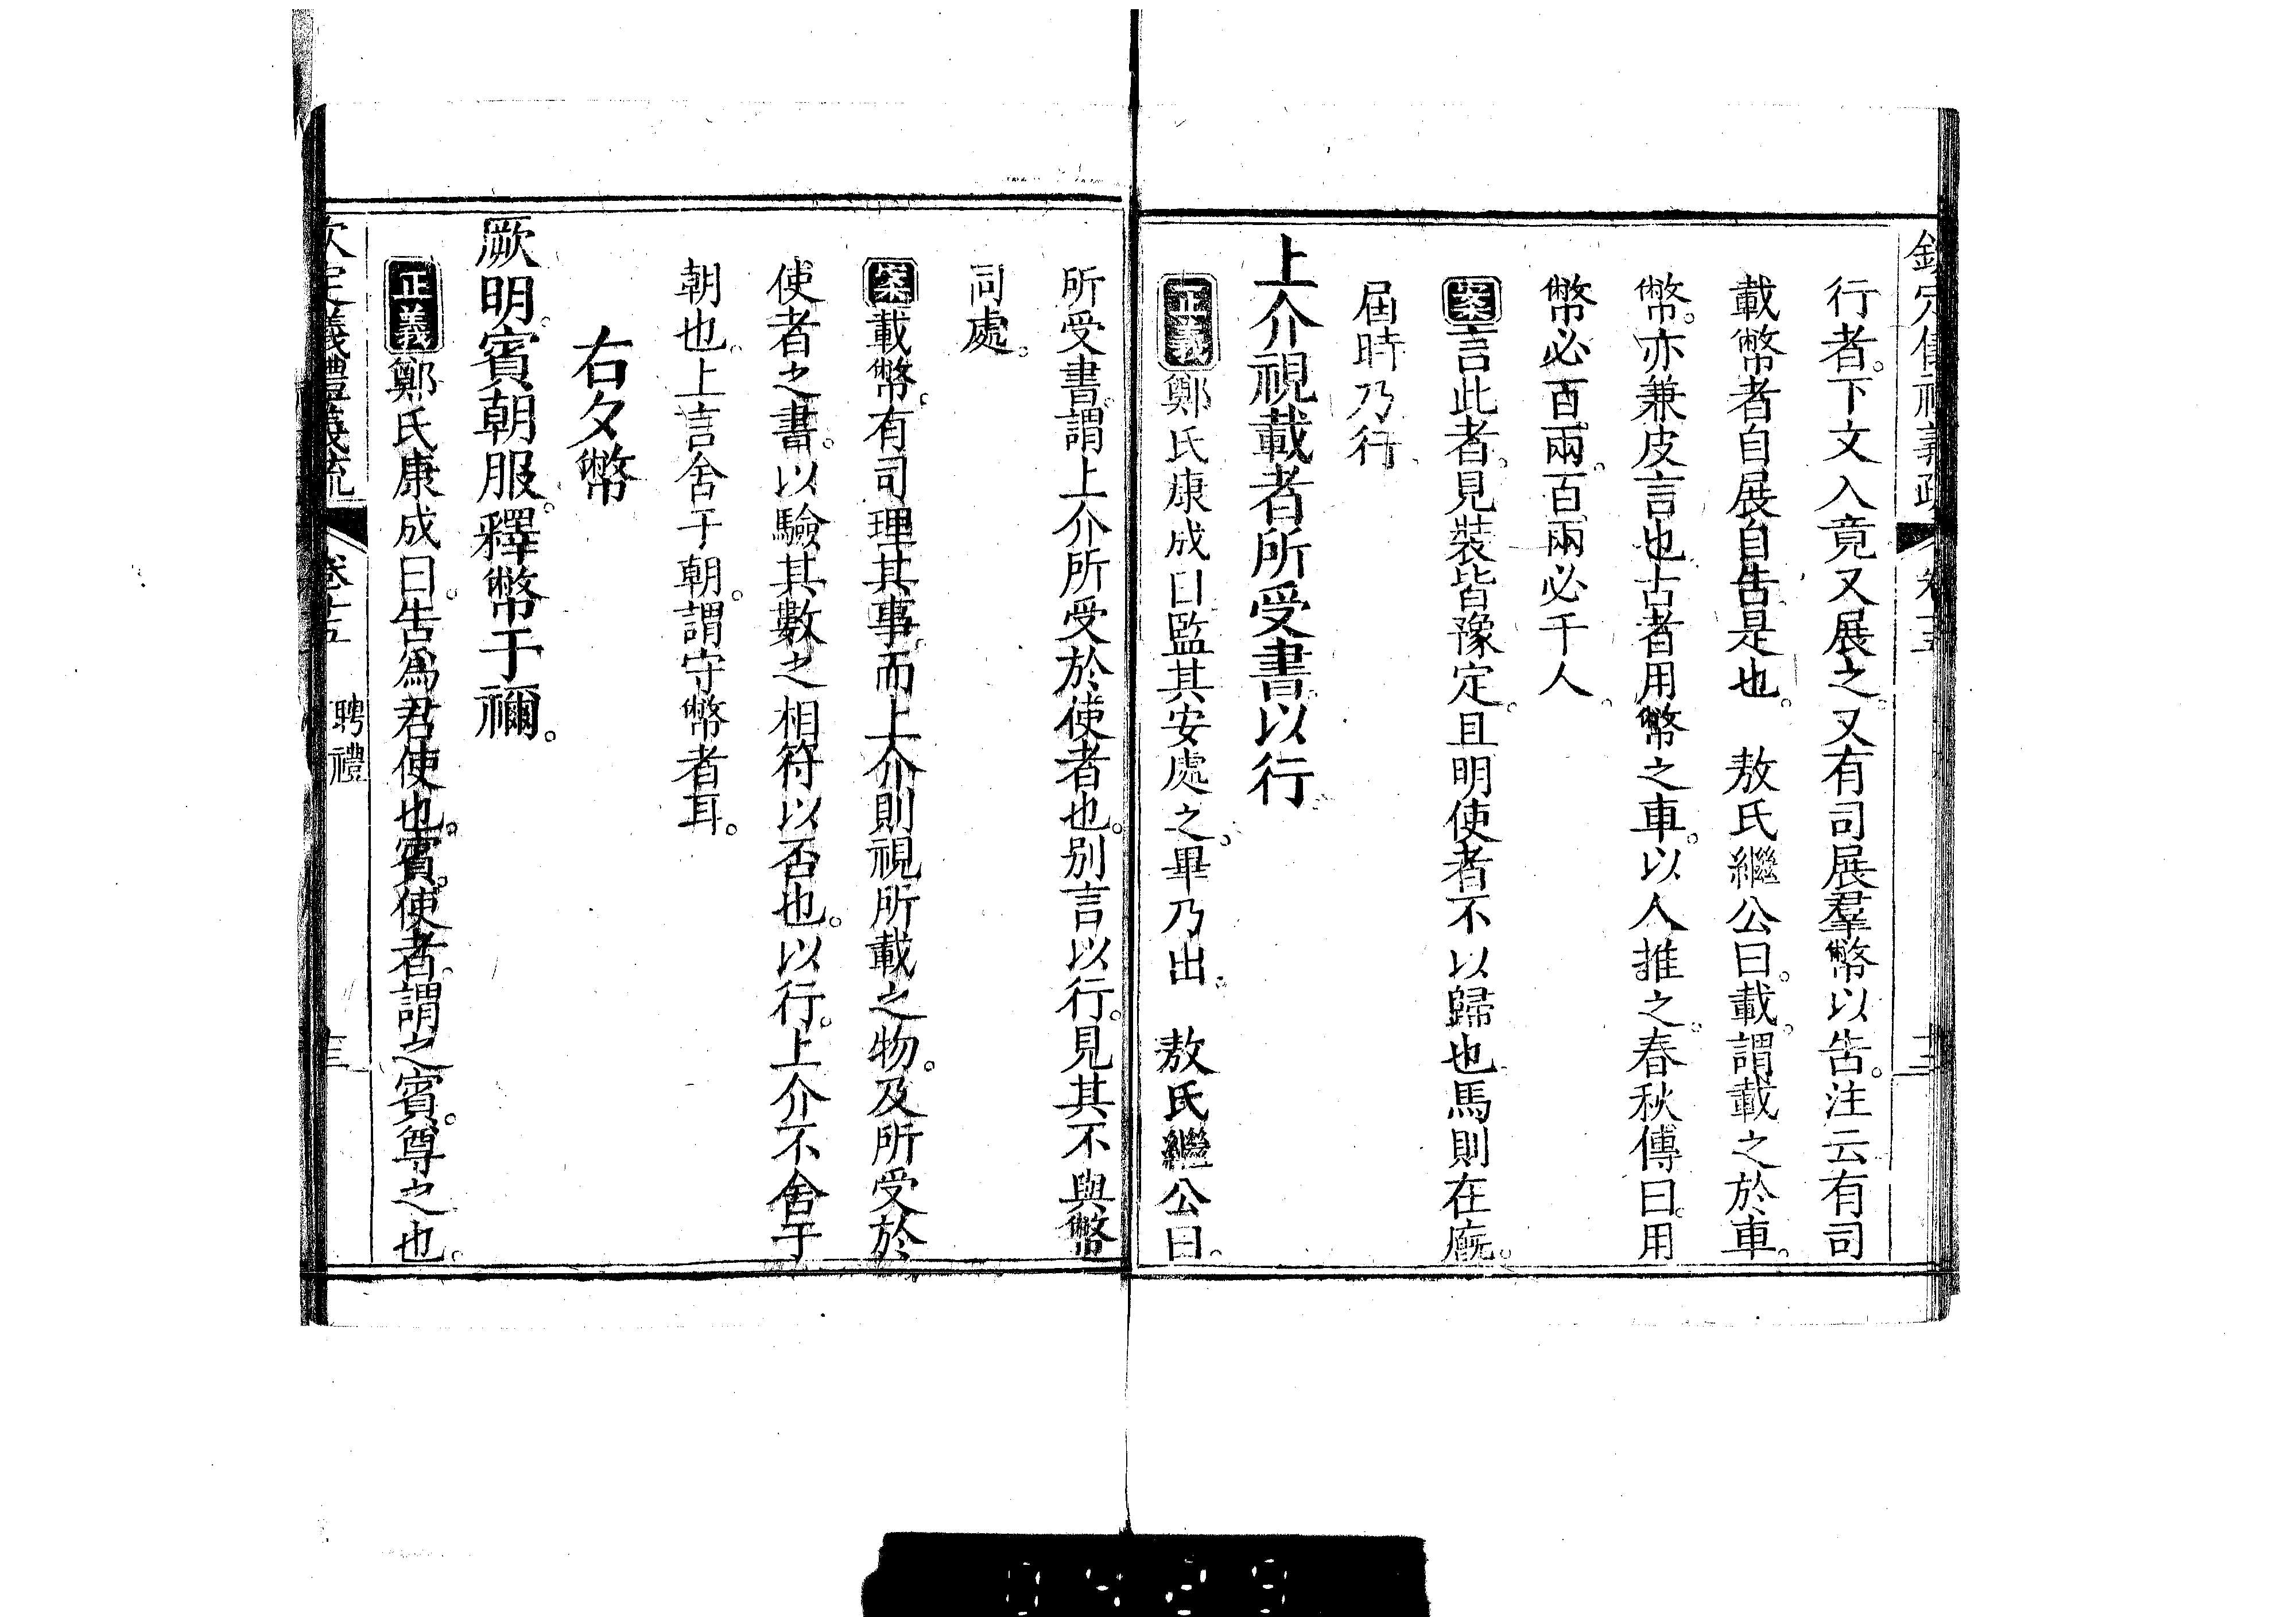 行者。下文入竟又展之。又有司展羣幣以告。注云有司
載幣者自展自告是也。敖氏繼公曰。載。謂載之於車。
幣。亦兼皮言也。古者用幣之車。以人推之。春秋傳曰。用
幣必百兩。百兩必千人。
案言此者。見裝皆豫定。且明使者不以歸也。馬則在廐。
屆時乃行。
上介視載者所受書以行。
正義鄭氏康成曰監其安處之。畢乃出。敖氏繼公曰。
所受書。謂上介所受於使者也。別言以行。見其不與幣
同處。
案載幣。有司理其事。而上介則視所載之物。及所受於
使者之書。以驗其數之相符以否也。以行。上介不舍于
朝也。上言舍于朝。謂守幣者耳。
右夕幣
厥明。賓朝服。釋幣于禰。
正義鄭氏康成曰。告爲君使也。賓。使者。謂之賓。尊之也。
聘禮